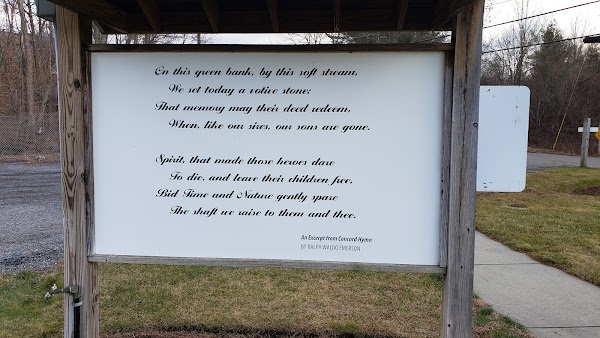 On this green bank, by this soft stream,
We set today a votive stone;
That memory may their deed redeem,
When, like our sires, our sons are gone.
Spirit, that made those heroes dare
To die, and leave their children free,
Bid Time and Nature gently spare
The shaft we raise to them and thee.
An Excerpt from Concord Hymn
BY RALPH WALDO EMERSON